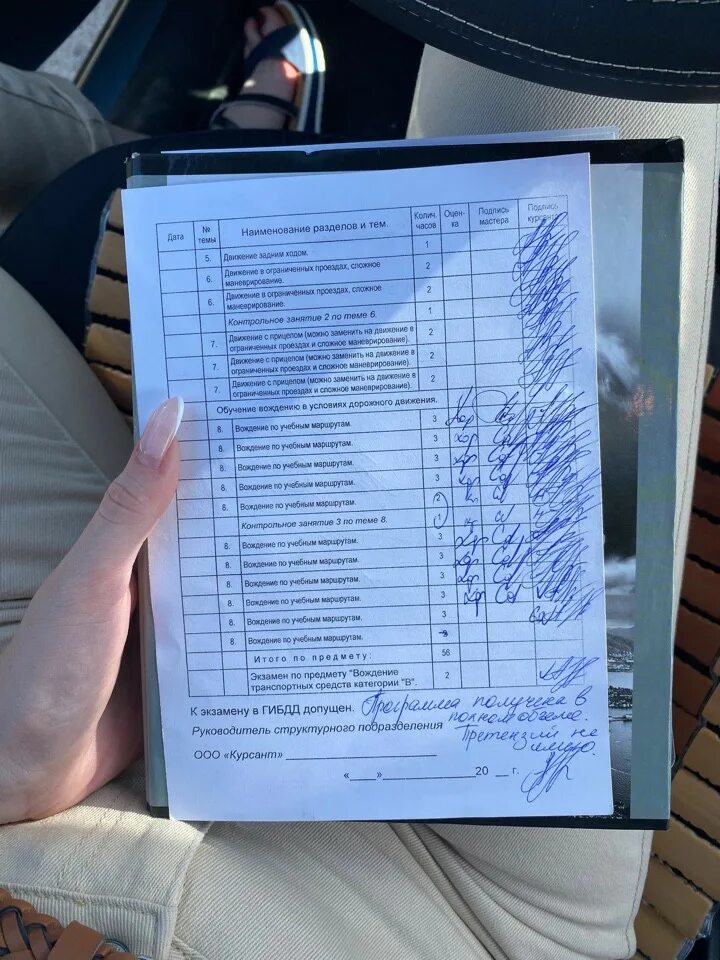 Дата № темы Наименование разделов и тем. Колич. часов Оцен-ка Подпись мастера Подпись курсанта
5. Движение задним ходом. 1
6. Движение в ограниченных проездах, сложное
маневрирование. 2
6. Движение в ограниченных проездах, сложное
маневрирование. 2
Контрольное занятие 2 по теме 6. 1
7. Движение с прицепом (можно заменить на движение в
ограниченных проездах и сложное маневрирование). 2
7. Движение с прицепом (можно заменить на движение в
ограниченных проездах и сложное маневрирование). 2
7. Движение с прицепом (можно заменить на движение в
ограниченных проездах и сложное маневрирование). 2
Обучение вождению в условиях дорожного движения.
8. Вождение по учебным маршрутам. 3 хор
8. Вождение по учебным маршрутам. 3 хор
8. Вождение по учебным маршрутам. 3 хор
8. Вождение по учебным маршрутам. 3 хор
8. Вождение по учебным маршрутам. 2
Контрольное занятие 3 по теме 8. 1
8. Вождение по учебным маршрутам. 3 хор
8. Вождение по учебным маршрутам. 3 хор
8. Вождение по учебным маршрутам. 3 хор
8. Вождение по учебным маршрутам. 3 хор
8. Вождение по учебным маршрутам. 3
8. Вождение по учебным маршрутам. 3
Итого по предмету: 56
Экзамен по предмету "Вождение
транспортных средств категории "В". 2
К экзамену в ГИБДД допущен. Программа получена в
Руководитель структурного подразделения полном объеме.
Претензий не
ООО «Курсант» имею.
« » 20 г.